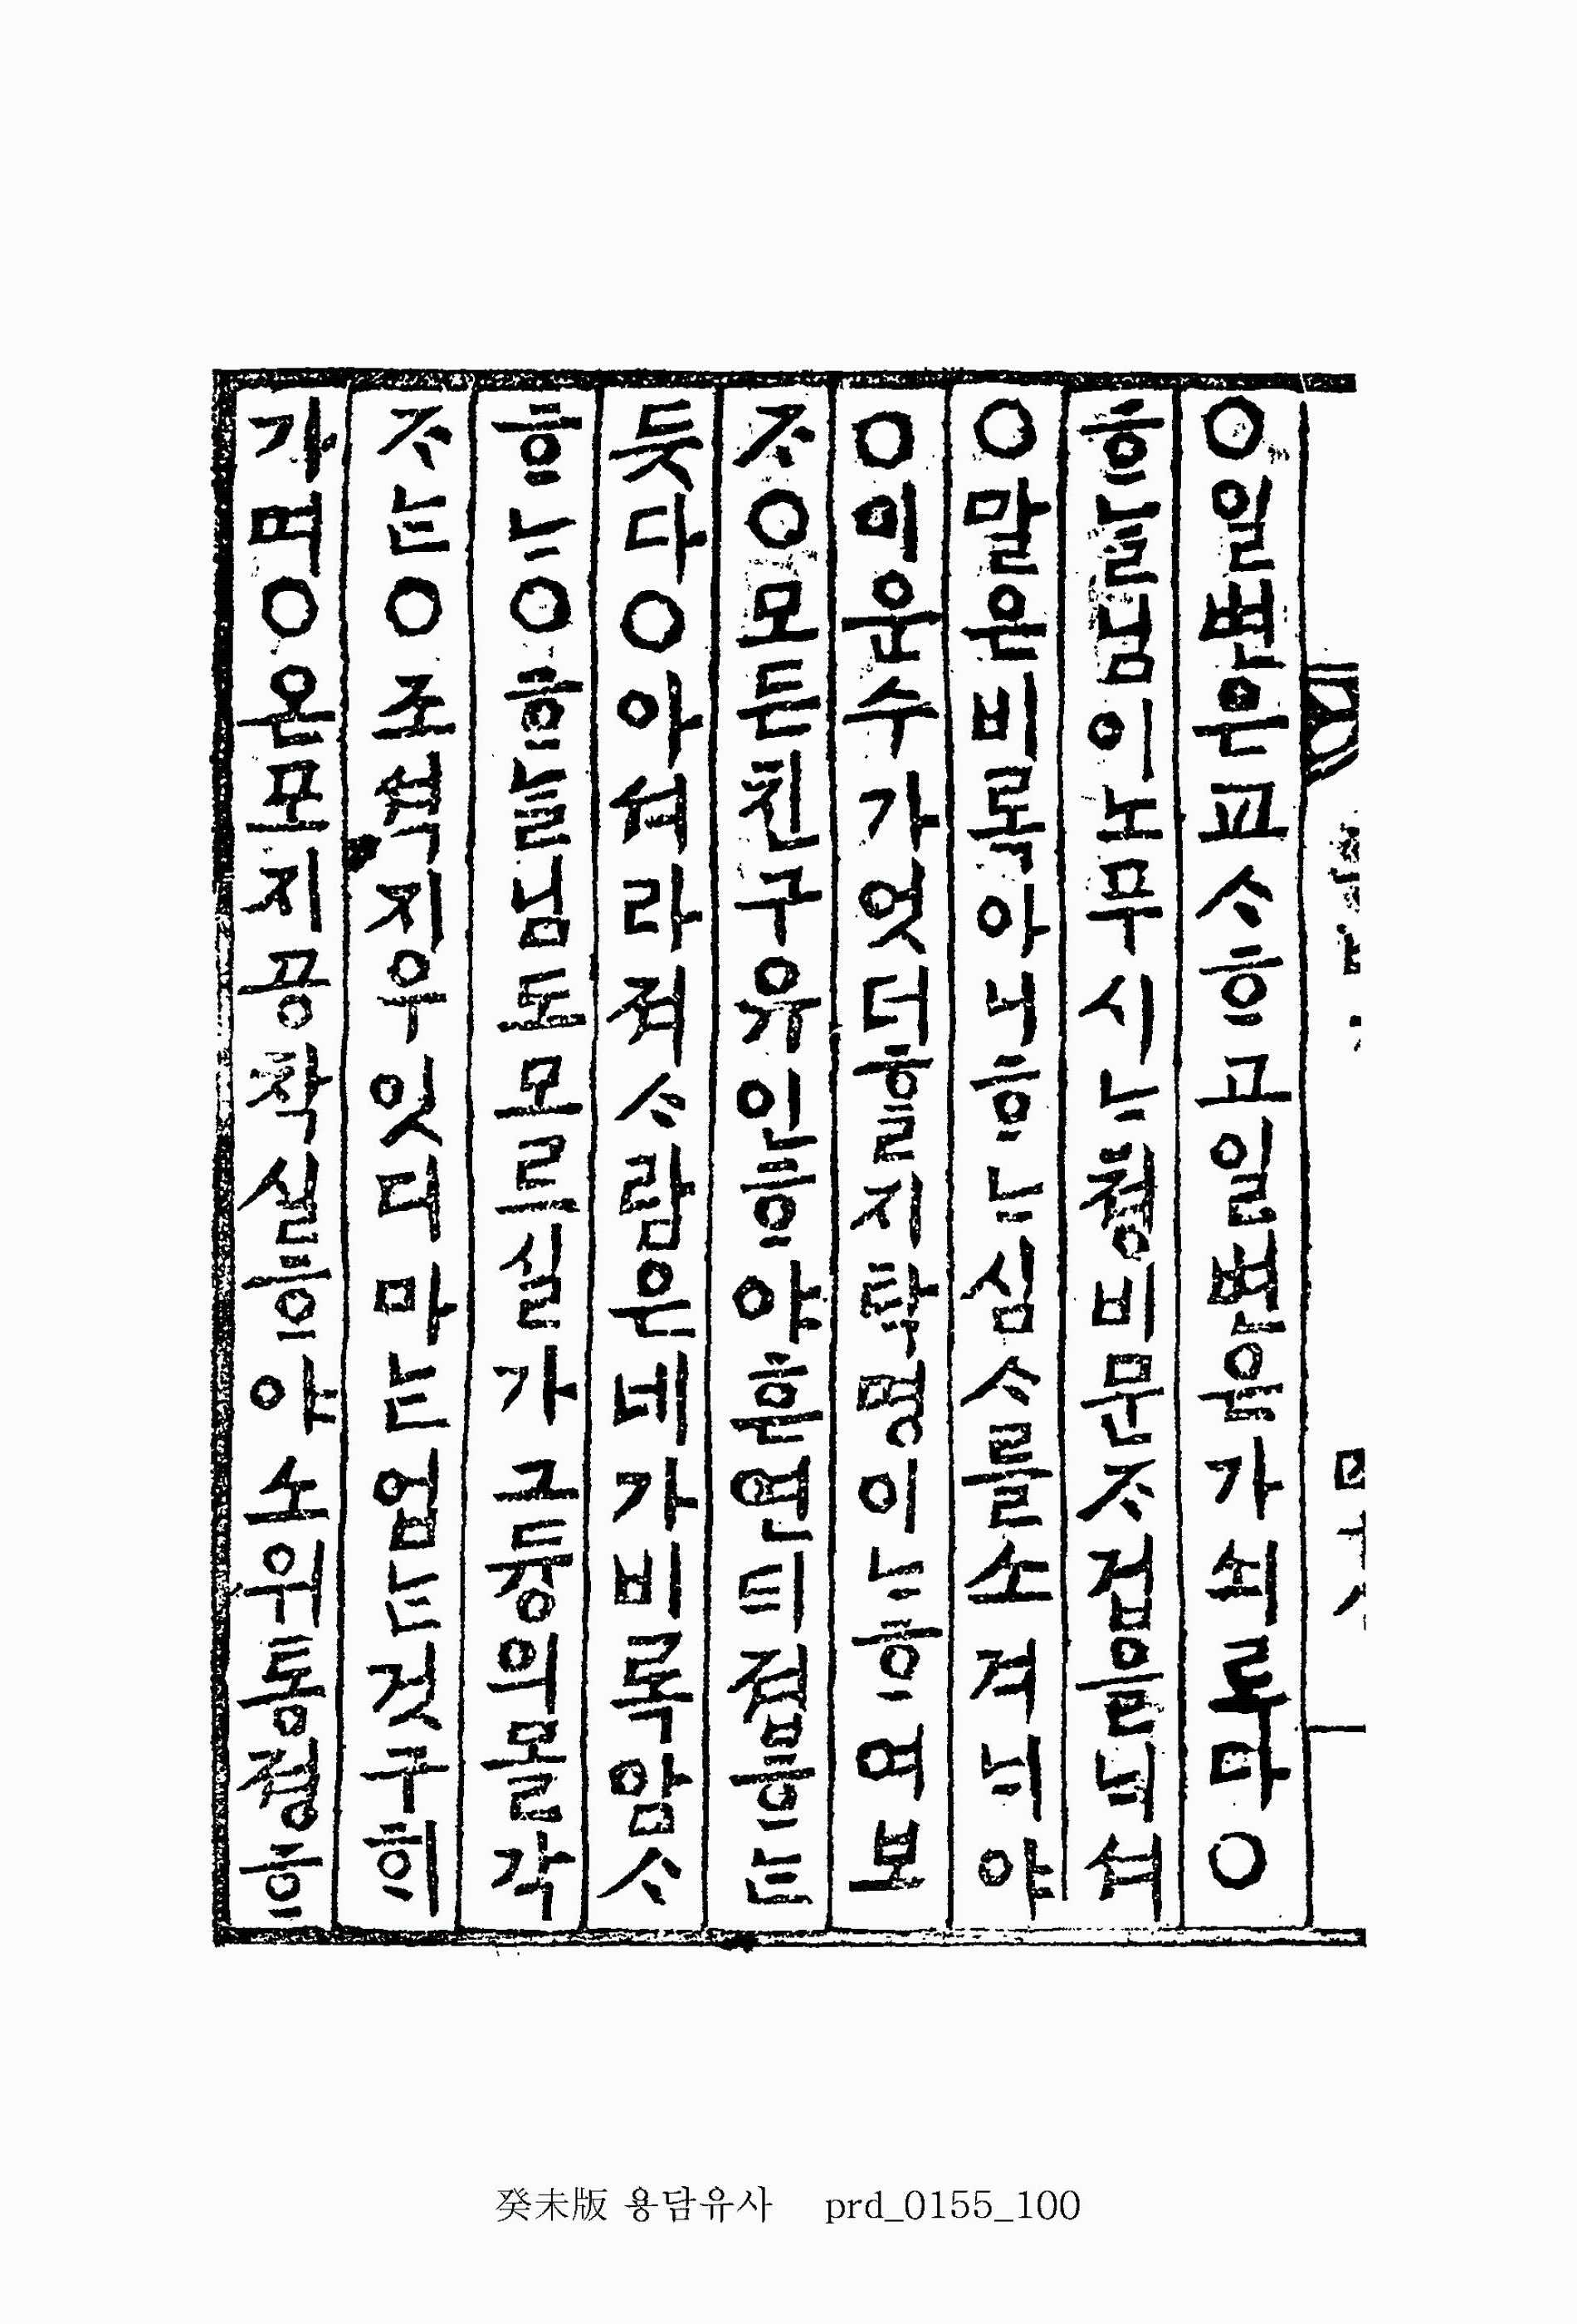 ○일변은교ᄉᆞᄒᆞ고일변은가쇠로다○
ᄒᆞᄂᆞᆯ님이노무시ᄂᆞ쳥비문ᄌᆞ겁을ᄂᆡ셔
○말은비록아니ᄒᆞᄂᆞ심ᄉᆞ를소겨ᄂᆡ야
○이운수가엇더ᄒᆞᆯ지탁명이ᄂᆞᄒᆞ여보
ᄌᆞ○모든친구유인ᄒᆞ야흔연ᄃᆡ졉ᄒᆞ는
듯다○아셔라져ᄉᆞ람은네가비록암ᄉᆞ
ᄒᆞᄂᆞ○ᄒᆞᄂᆞᆯ님도모르실가그듕의몰각
ᄌᆞ는○조셕지우잇디마는업는것구ᄒᆡ
가며○온포지공착실ᄒᆞ야소위통졍ᄒᆞ
癸未版 용담유사 prd_0155_100